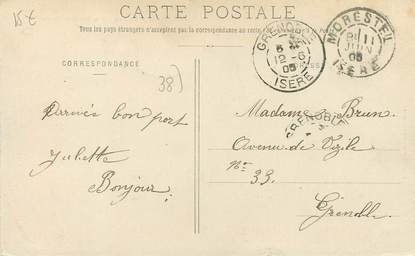 15€
CARTE POSTALE
Tous les pays étrangers n'acceptent pas la correspondance au recto
CORRESPONDANCE
38)
GRENOBLE
12-6
05
ISERE
MORESTEL
11
JUIN
05
ISERE
Arrivés bon port
Juliette
Bonjour
Madame Brun
GRENOBLE
Avenue de Vizile
No
33.
Grenoble